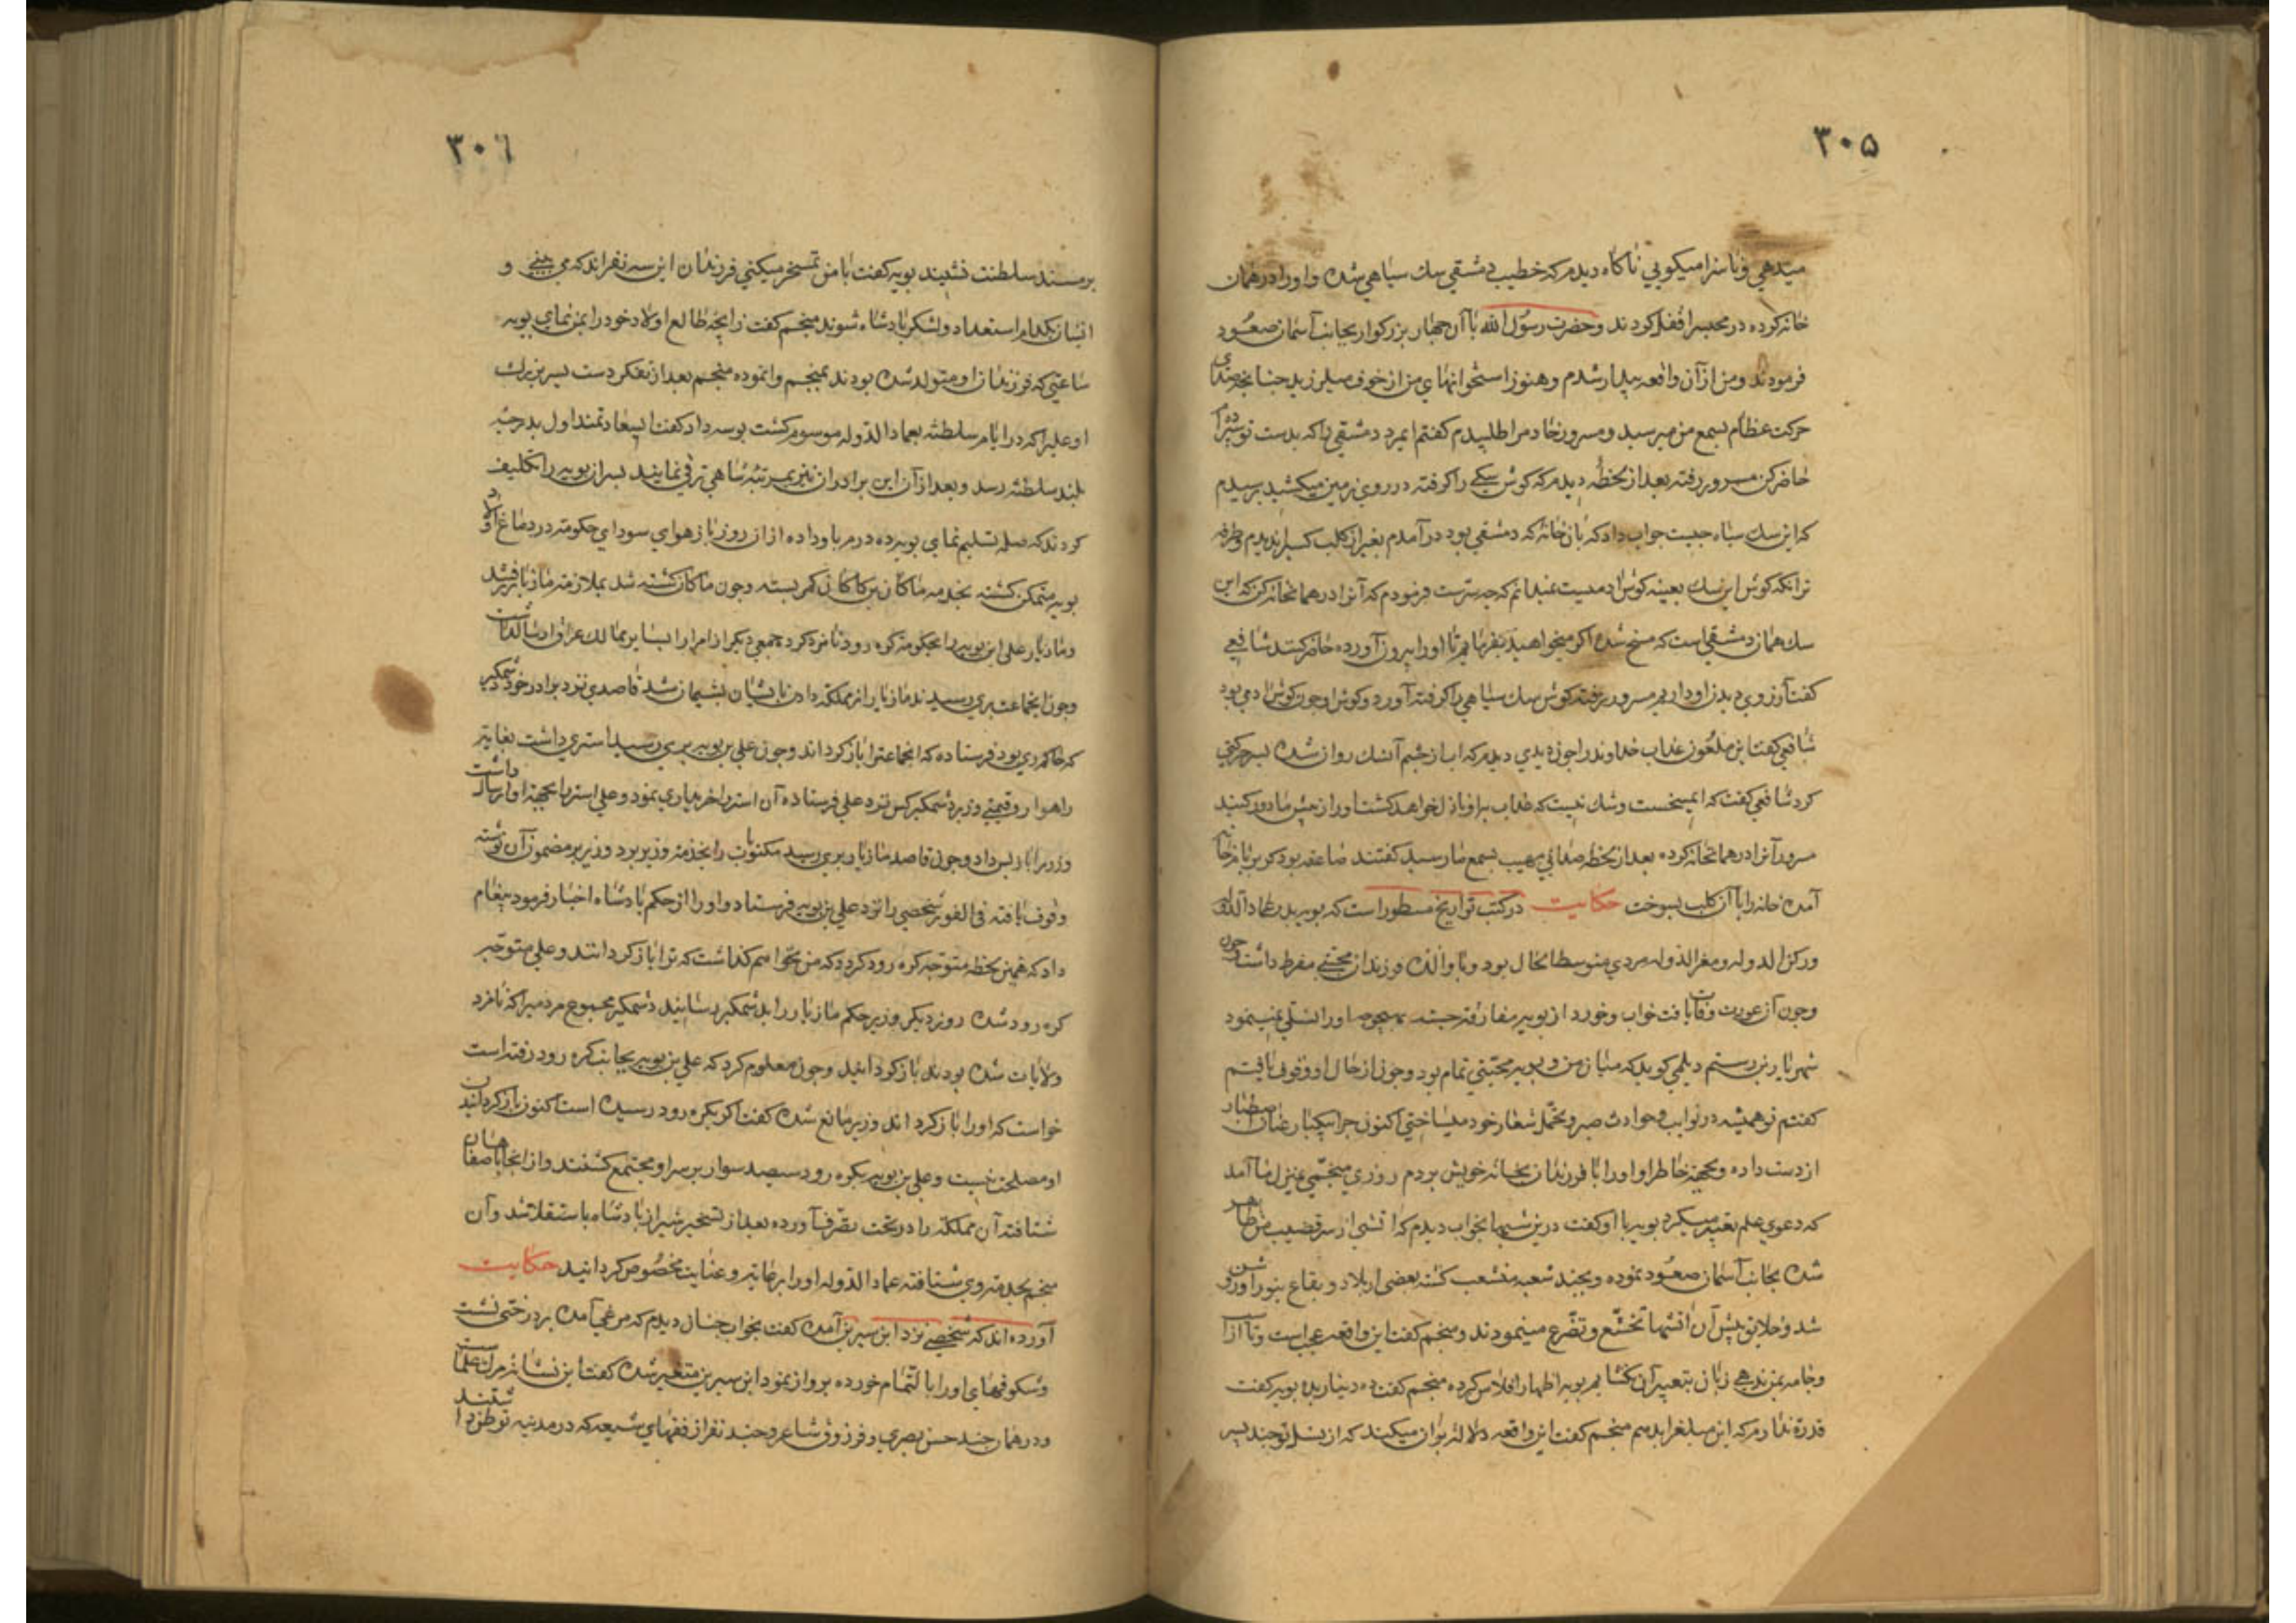 ۳۰۵
میدهي وناسزا میکویي ناکاه دیدم که خطیب دمشقي سك سیاهي شده واورا در همان
خانه کرده در محبس را قفل کردند وحضرت رسول الله با آن چهار بزرکوار بجانب آسمان صعود
فرمودند ومن از آن واقعه بیدار شدم وهنوز استخوانهاي من از خوف میلرزید چنانچه صداي
حرکت عظام بسمع من میرسید ومسرور خادم را طلبیدم کفتم ایمرد دمشقي را که بدست تو سپرده ام
حاضر کن مسرور رفته بعد از لحظه دیدم که کوش سکي را کرفته در روي زمین میکشید پرسیدم
که این سك سیاه چیست جواب داد که بان خانه که دمشقي بود در آمدم بغیر از کلب کسیرا ندیدم وطرفه
تر انکه کوش این سك بعینه کوش ادمیست نمیدانم که چه سرست فرمودم که آنرا در همانخانه کن که این
سك همان دمشقي است که مسخ شده اکر میخواهید بفرمایم تا اورا بیرون آورده حاضر کنند شافعي
کفت آرزوي دیدن او داریم مسرور رفته کوش سك سیاهي را کرفته آورد وکوش او چون کوش ادمي بود
شافعي کفت این ملعون عذاب خداوند را چون دیدي دیدم که اب از چشم آنسك روان شده سر حرکتي
کرد شافعي کفت که این مسخست وشك نیست که عذاب برو نازل خواهد کشت اورا از پیش ما دور کنید
مسرور آنرا در همانخانه کرده بعد از لحظه صدائي مهیب بسمع ما رسید کفتند صاعقه بود که بر بام خانه
آمده خانه را با آن کلب بسوخت حکایت در کتب تواریخ مسطور است که بویه پدر عماد الدوله
ورکن الدوله ومعز الدوله مردي متوسط الحال بود وبا والده فرزندان محبتي مفرط داشت چون
وچون آن عورت وفات یافت خواب وخورد از بویه مفارقت جسته بهیچوجه اورا تسلي نمینمود
شهریار بن رستم دیلمي کوید که میان من وبویه محبتي تمام بود وچون از حال او وقوف یافتم
کفتم تو همیشه در نوایب وحوادث صبر وتحمل شعار خود میساختي اکنون چرا یکبار عنان اصطبار
از دست داده وبجهة خاطر او اورا با فرزندان بخانه خویش بردم روزي منجمي بمنزل ما آمد
که دعوي علم تعبیر میکرد بویه با او کفت درین شبها بخواب دیدم که اتشي از سر قضیب من ظاهر
شده بجانب آسمان صعود نموده وبچند شعبه منشعب کشته بعضي از بلاد وبقاع بنور او روشن
شد وخلایق پیش آن اتشها تخشع وتضرع مینمودند ومنجم کفت این واقعه عجب است وتا اسب
وجامه بمن ندهي زبان بتعبیر آن نکشایم بویه اظهار افلاس کرده منجم کفت ده دینار بده بویه کفت
قدرة ندارم که این مبلغ را بدهم منجم کفت این واقعه دلالة بران میکند که از نسل تو چند پسر
۳۰۶
بر مسند سلطنت نشیند بویه کفت با من تمسخر میکني فرزندان این سه نفراند که مي بیني و
ایشان بکدام استعداد ولشکر پادشاه شوند منجم کفت زایچه طالع اولاد خود را بمن نماي بویه
ساعتي که فرزندان او متولد شده بودند بمنجم وانموده منجم بعد از تفکر دست پسر بزرك
او علي را که در ایام سلطنة بعماد الدوله موسوم کشت بوسه داد کفت ایسعادتمند اول بدرجه
بلند سلطنة رسد وبعد از آن این برادران نیز بمرتبه شاهي ترقي نمایند پسران بویه را تکلیف
کردند که صله تسلیم نماي بویه ده درم باو داده ازان روز باز هواي سوداي حکومة در دماغ اولاد
بویه متمکن کشته بخدمة ماکان بن کاکان کمر بسته وچون ماکان کشته شد بملازمة مازیار رفتند
ومازیار علي ابن بویه را بحکومة کره رود نامزد کرد وجمعي دیکر از امرا را بسایر ممالك عراق ارسال داشت
وچون انجماعت بري رسیدند مازیار از مملکة دادن بایشان پشیمان شد قاصدي نزد برادر خود وشمکیر
که حاکم ري بود فرستاده که انجماعت را باز کرداند وچون علي بن بویه بري رسید استري داشت بغایة
راهوار وقیمتي وزیر وشمکیر کس نزد علي فرستاده آن استر را خریداري نمود وعلي استر را بجهة او ارسال داشت
وزر را باز پس داد وچون قاصد مازیار بري رسید مکتوبات را بخدمة وزیر برد وزیر بر مضمون آن نوشته
وقوف یافته في الفور شخصي را نزد علي بن بویه فرستاد واورا از حکم پادشاه اخبار فرمود پیغام
داد که همین لحظه متوجه کره رود کرد که من نخواهم کذاشت که ترا باز کردانند وعلي متوجه
کره رود شده روز دیکر وزیر حکم مازیار را بوشمکیر رسانید وشمکیر مجموع مردمیرا که نامزد
ولایات شده بودند باز کردانید وچون معلوم کرد که علي بن بویه بجانب کره رود رفته است
خواست که اورا باز کرداند وزیر مانع شده کفت اکر بکره رود رسیده است اکنون باز کردانیدن
او مصلحت نیست وعلي بن بویه بکره رود سیصد سوار بر سر او مجتمع کشتند واز انجا باصفاهان
شتافته آن مملکة را در تحت تصرف آورده بعد از تسخیر شیراز پادشاه باستقلال شد وآن
منجم بخدمة وي شتافته عماد الدوله اورا برعایة وعنایت مخصوص کردانید حکایت
آورده اند که شخصي نزد ابن سیرین آمده کفت بخواب چنان دیدم که مرغي آمده بر درختي نشست
وشکوفهاي اورا بالتمام خورده پرواز نمود ابن سیرین متغیر شده کفت این نشانه مرك علماست
ودر همان چند حسن بصري وفرزوق شاعر وچند نفر از فقهاي شیعه که در مدینه توطن داشتند